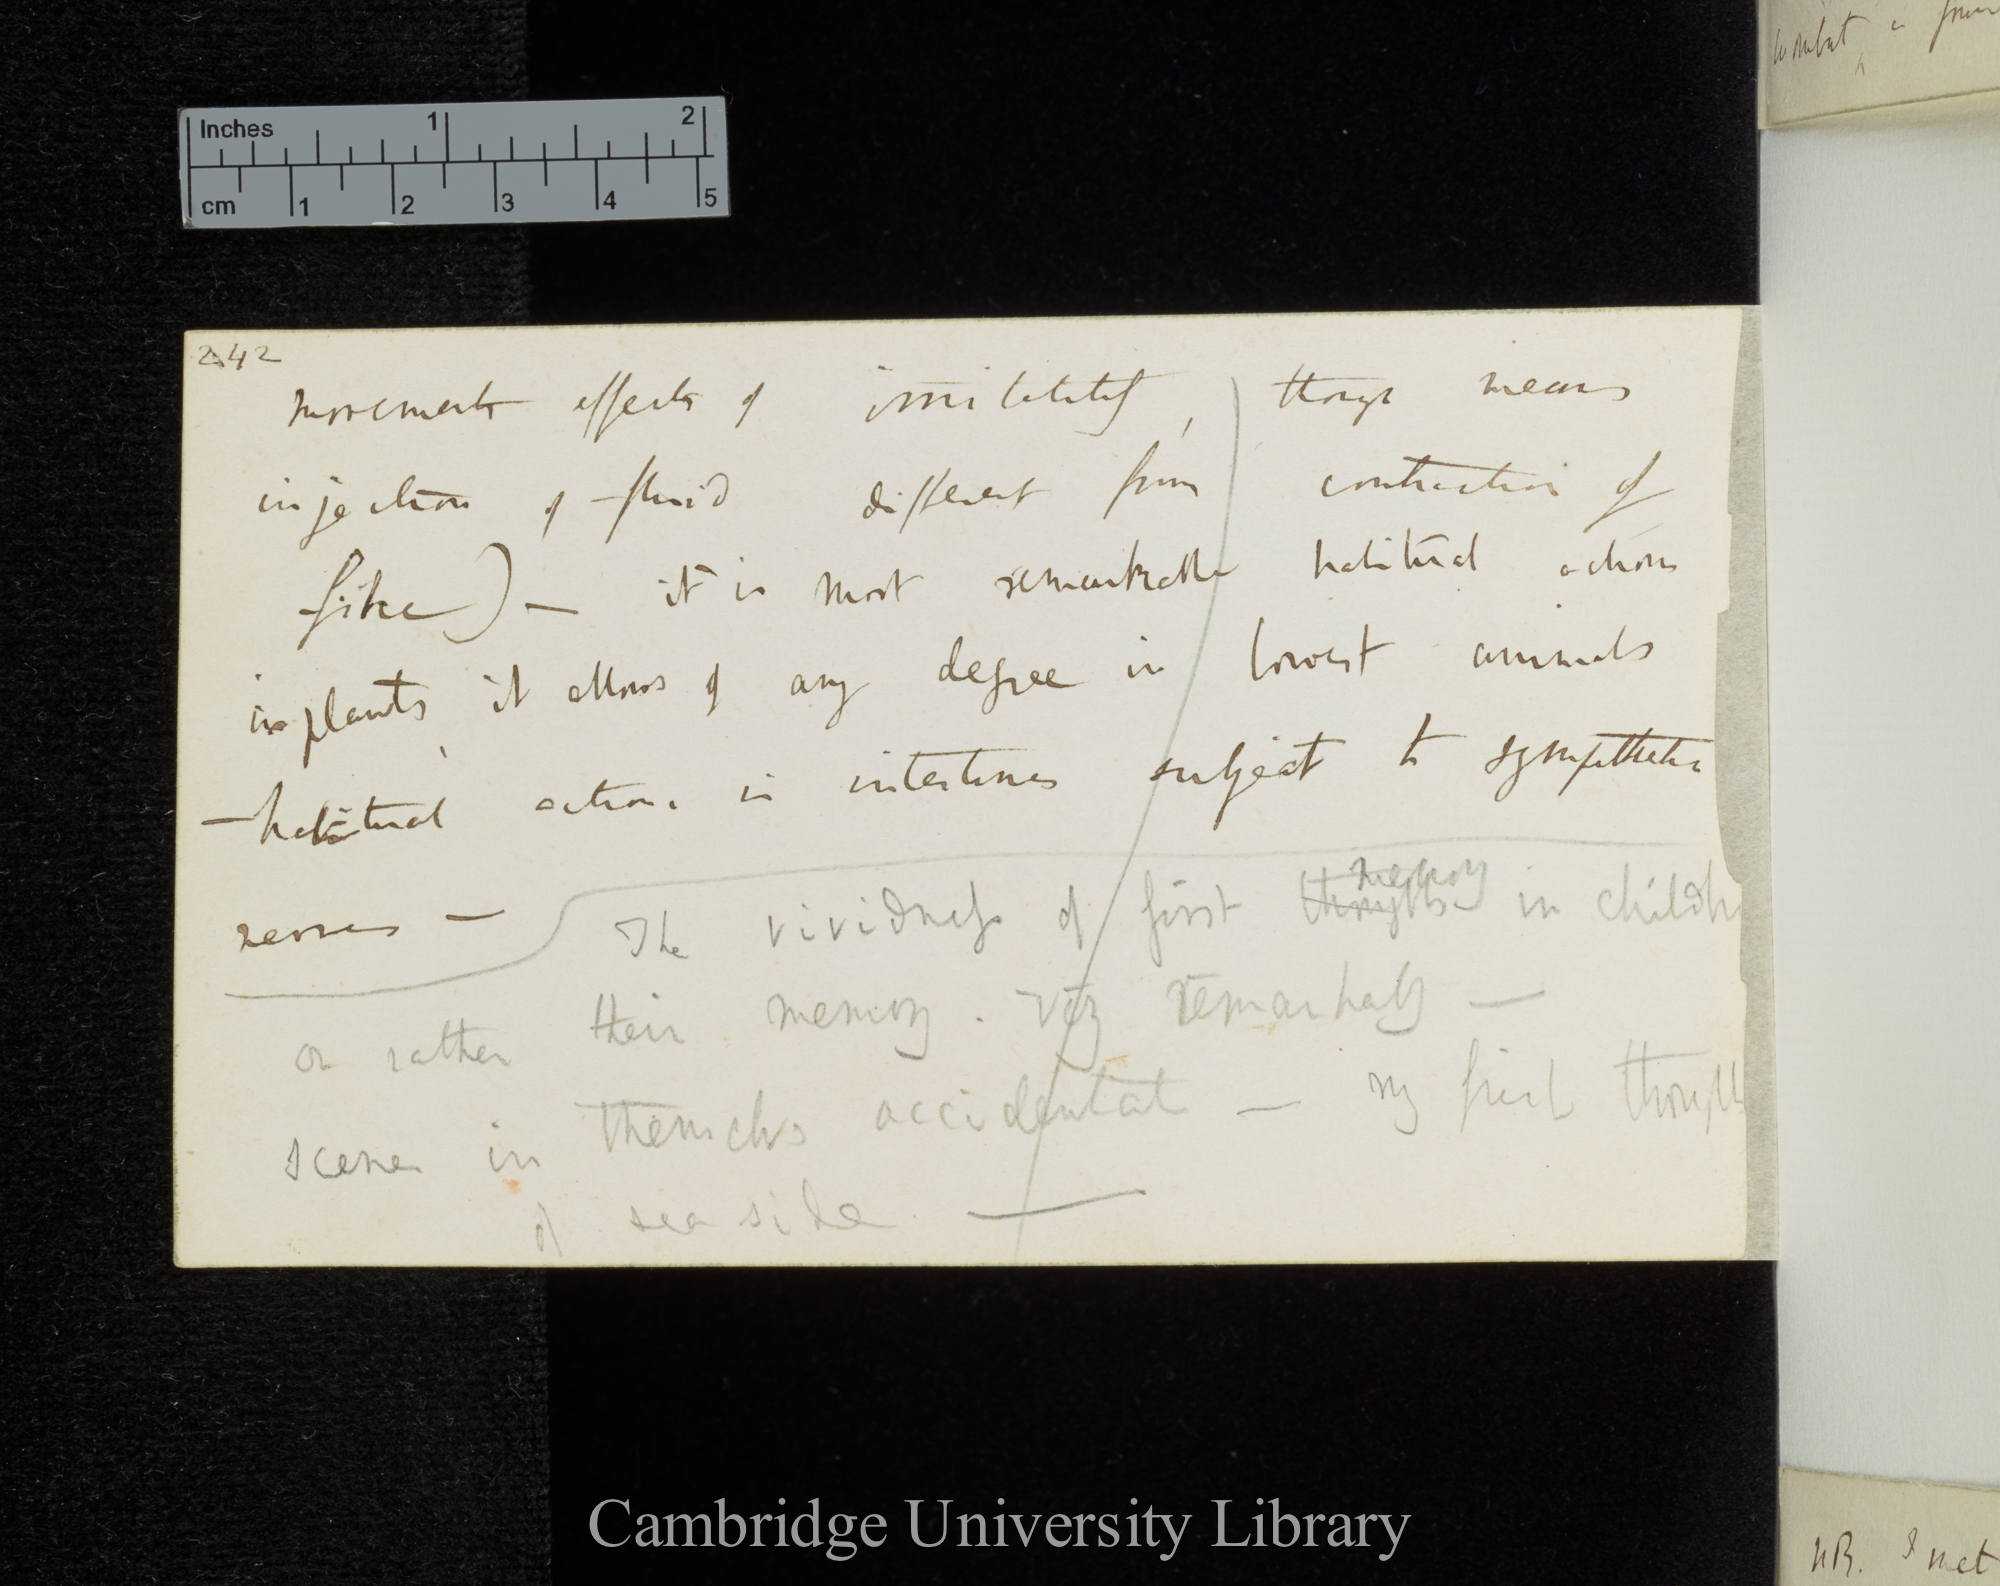 Inches 1 2
cm 1 2 3 4 5
242
movements effects of irritability, though means
injection of fluid different from contraction of
fibre) — it is most remarkable habitual actions
in plants it allows of any degree in lowest animals
— habitual action in intestines subject to sympathetic
nerves —
The vividness of first thoughts memory in childh
or rather their memory. very remarkably —
scenes in themselves accidental — my first thought
of sea side. —
wombat is foun
NB. I met
Cambridge University Library